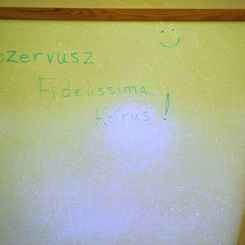 szervusz
Fidelissima
kórus!